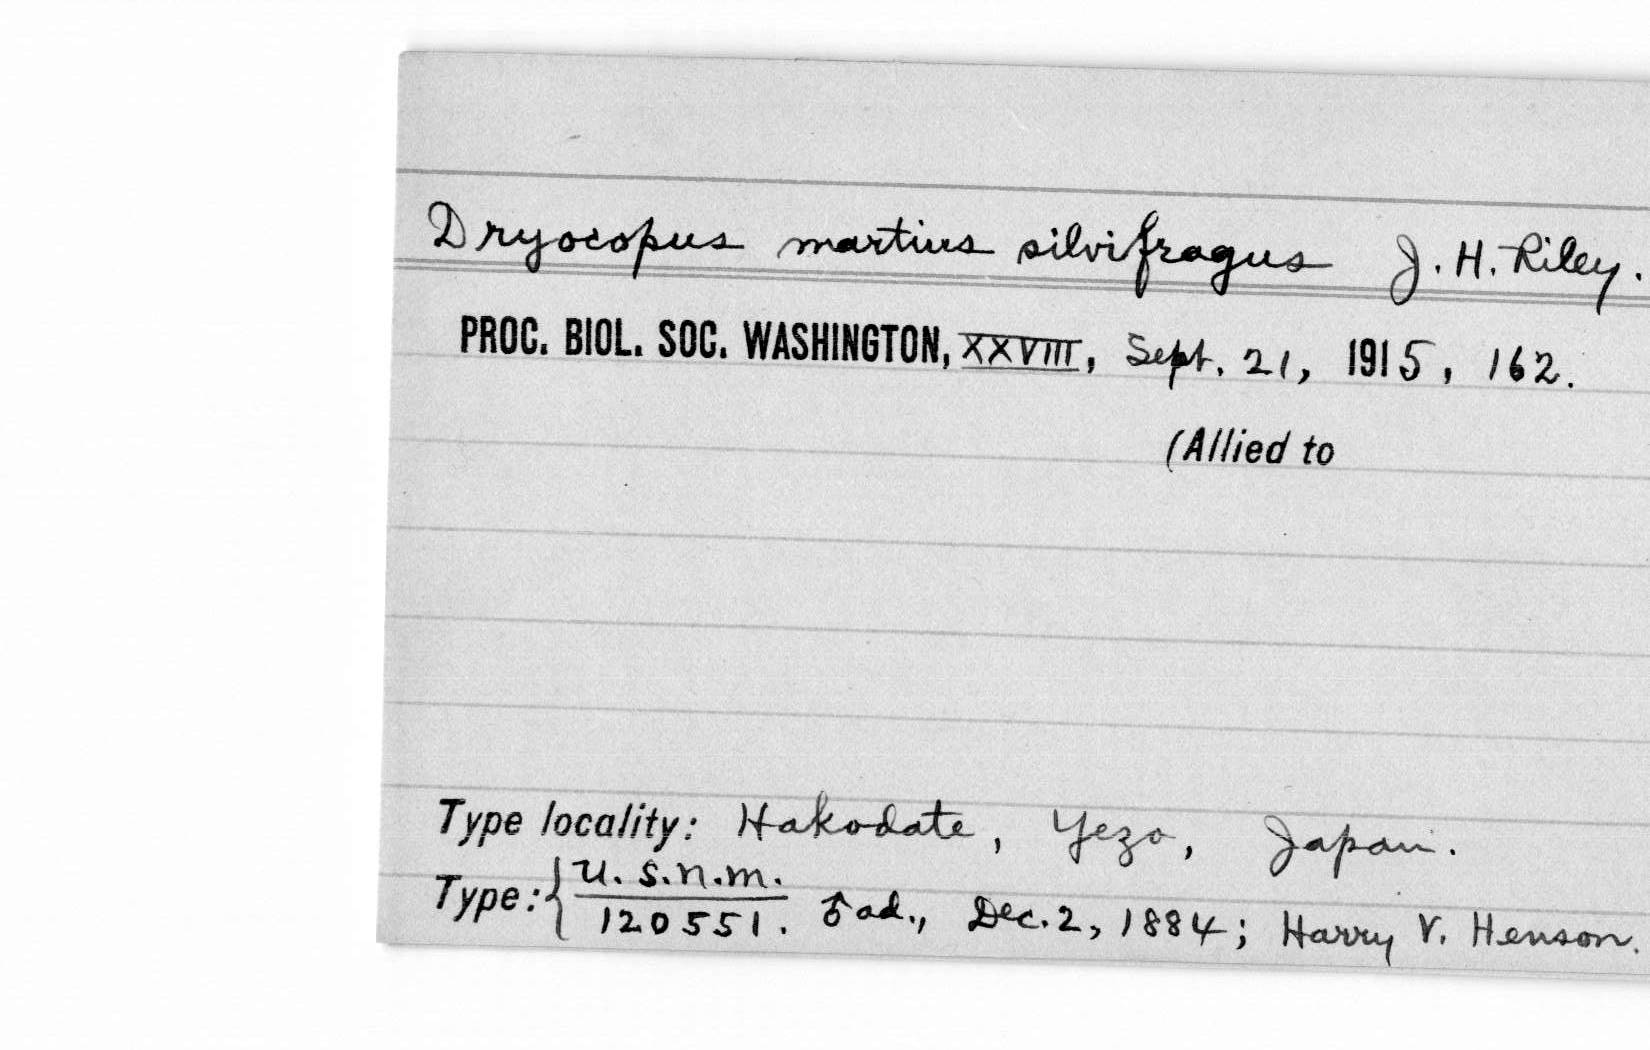 Dryocopus martius silvifragus J. H. Riley.
PROC. BIOL. SOC. WASHINGTON, XXVIII, Sept. 21, 1915, 162.
(Allied to
Type locality: Hakodate, Yezo, Japan.
Type: { U.S.N.M.
120551. ♂ ad., Dec. 2, 1884; Harry V. Henson.